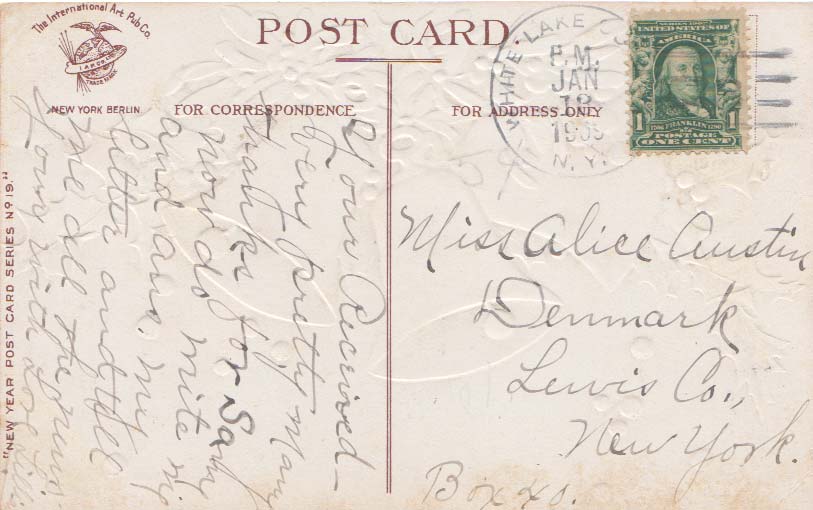 The International Art Pub Co.
TRADE MARK
NEW YORK BERLIN
POST CARD
FOR CORRESPONDENCE
FOR ADDRESS ONLY
WHITE LAKE
P.M.
JAN
N. Y.
SERIES 1902
UNITED STATES OF
AMERICA
1 1
1706 FRANKLIN 1790
POSTAGE
ONE CENT
"NEW YEAR POST CARD SERIES Nº 19."
Your Received—
Very pretty Many
thanks for Same
now do write
and ans. my
letter and tell
me all the news.
Yours with Love
Miss Alice Austin
Denmark
Lewis Co.,
New York.
Box 40.